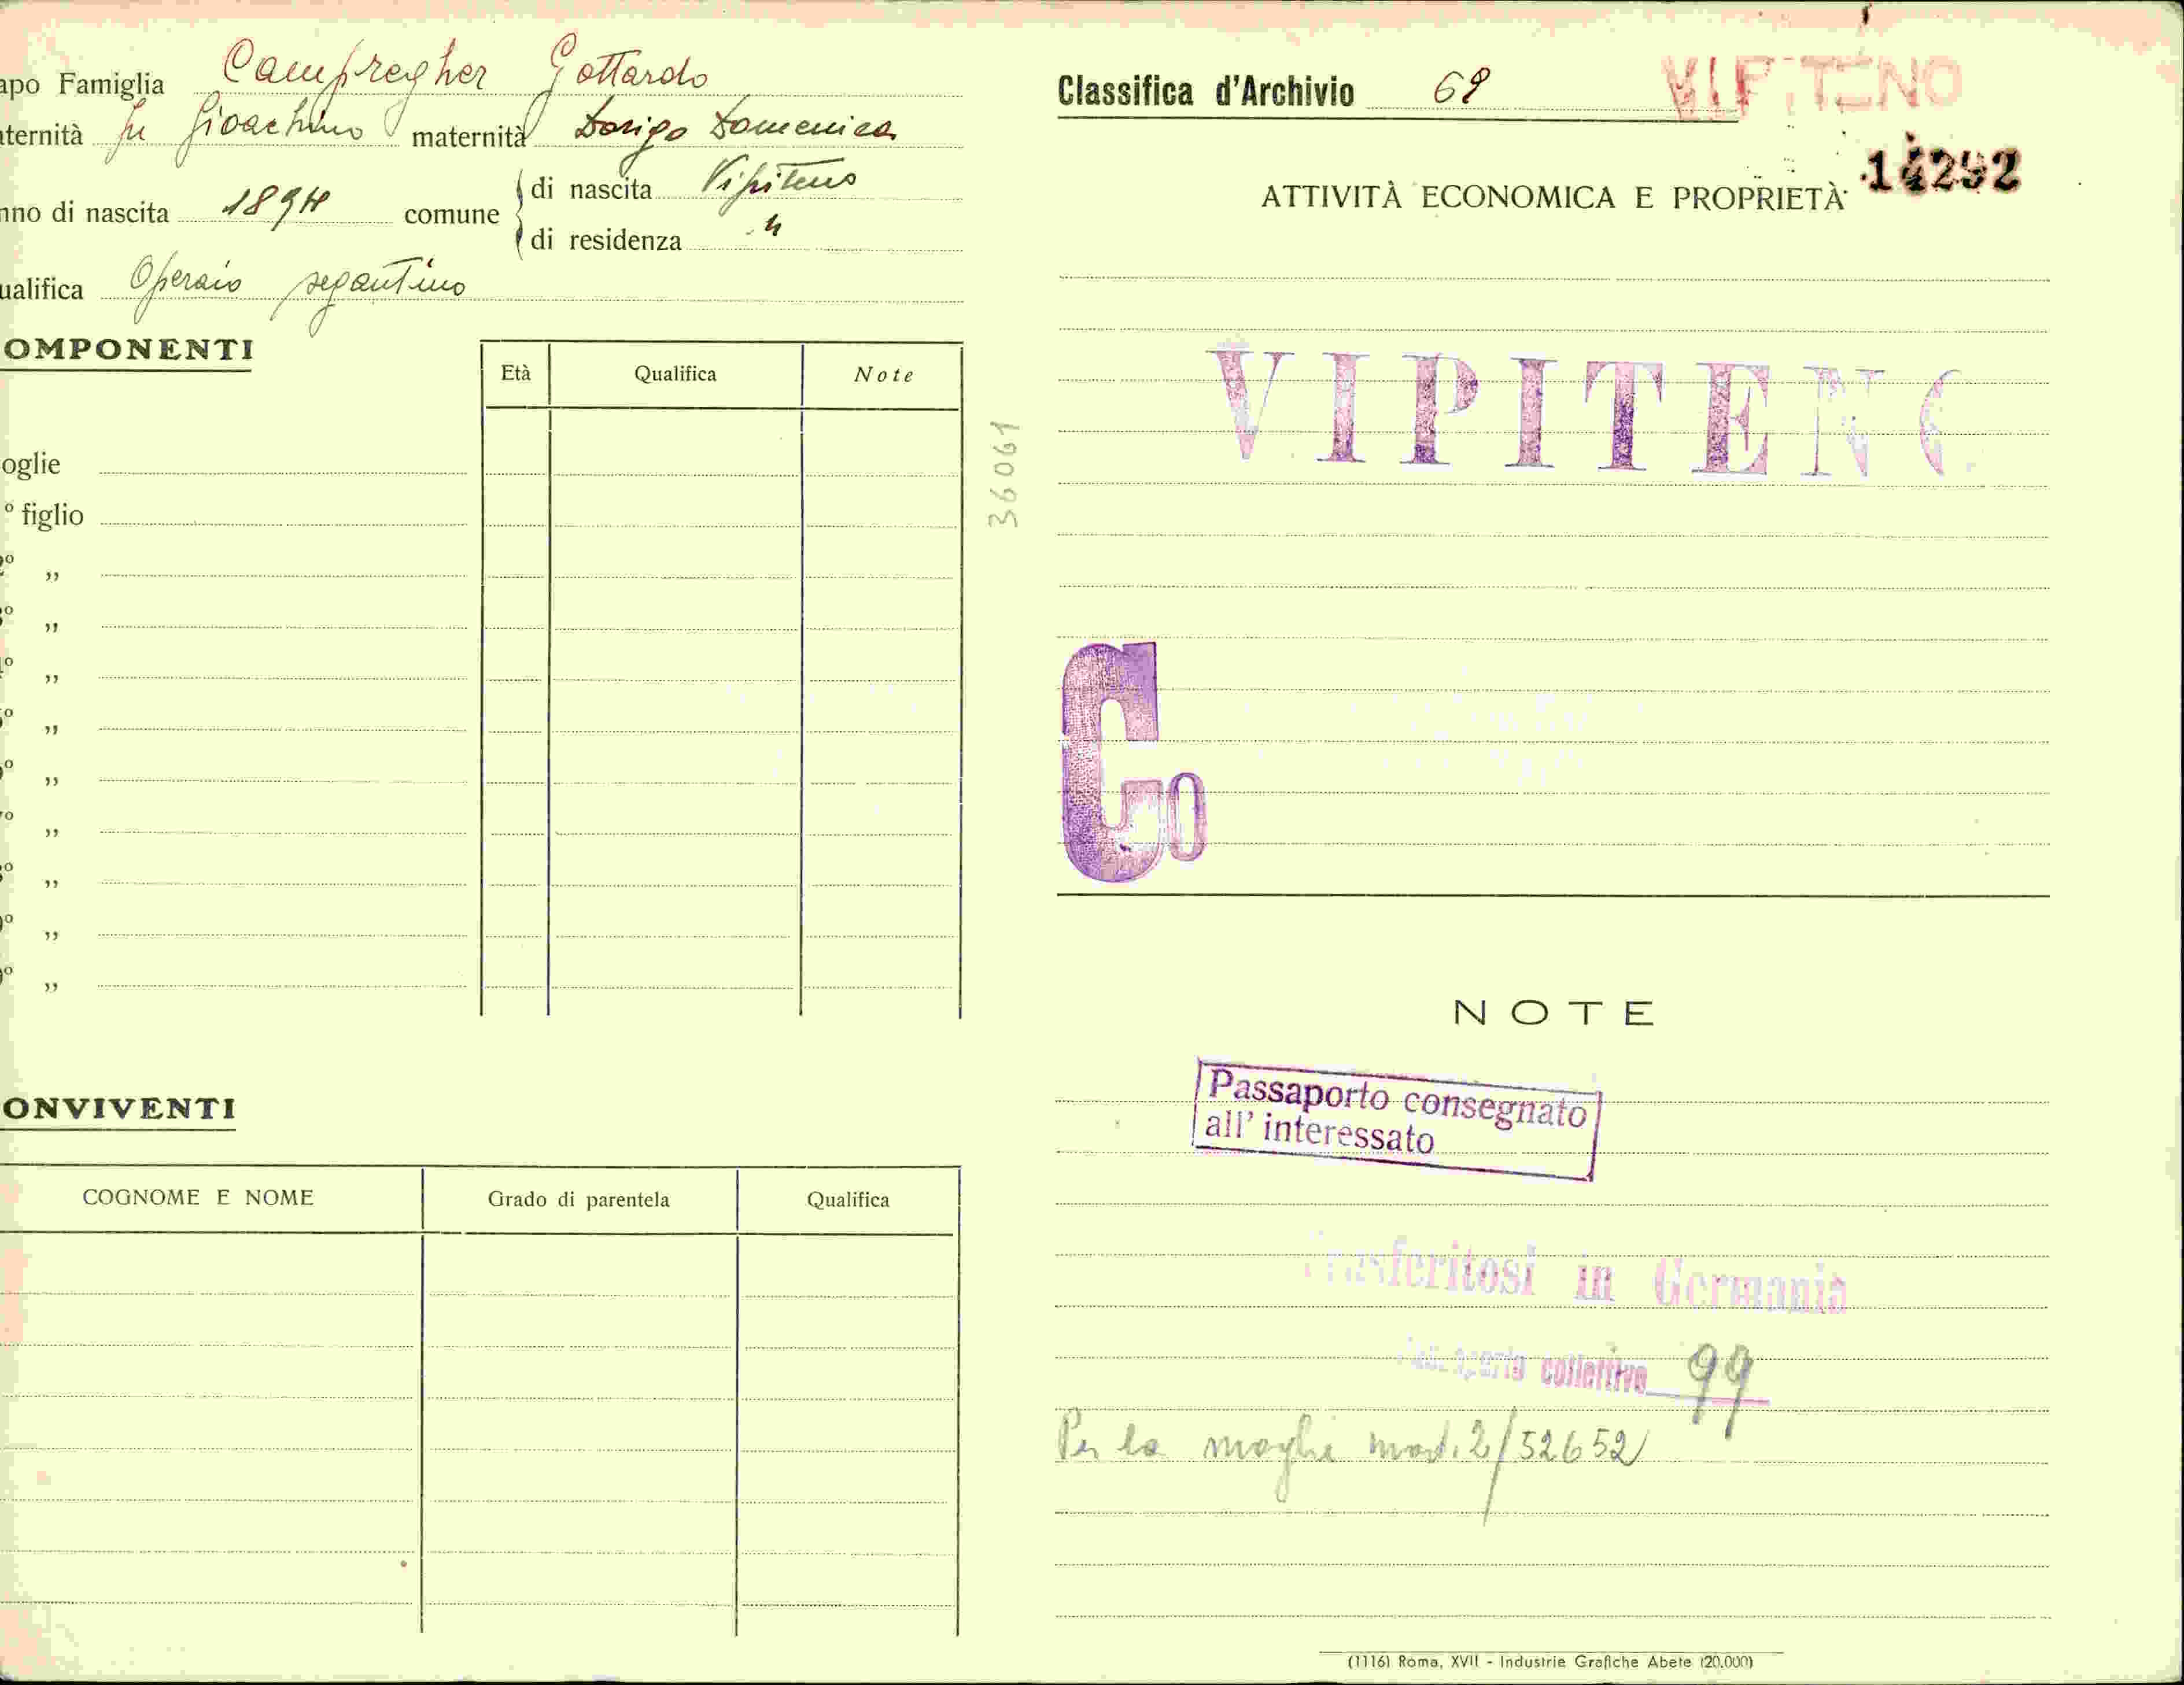 apo Famiglia Campregher Gottardo
aternità fu Gioachino maternità Dorigo Domenica
nno di nascita 1894 comune di nascita Vipiteno
di residenza "
ualifica Operaio segantino
OMPONENTI
Età Qualifica Note
oglie
º figlio
2º ,,
3º ,,
4º ,,
5º ,,
6º ,,
7º ,,
8º ,,
9º ,,
0º ,,
ONVIVENTI
COGNOME E NOME Grado di parentela Qualifica
36061
Classifica d'Archivio 69 VIPITENO
14292
ATTIVITÀ ECONOMICA E PROPRIETÀ
VIPITENO
Co
NOTE
Passaporto consegnato
all' interessato
Trasferitosi in Germania
Passaporto collettivo 99
Per la moglie mod. 2/52652
(1116) Roma, XVII - Industrie Grafiche Abete (20.000)